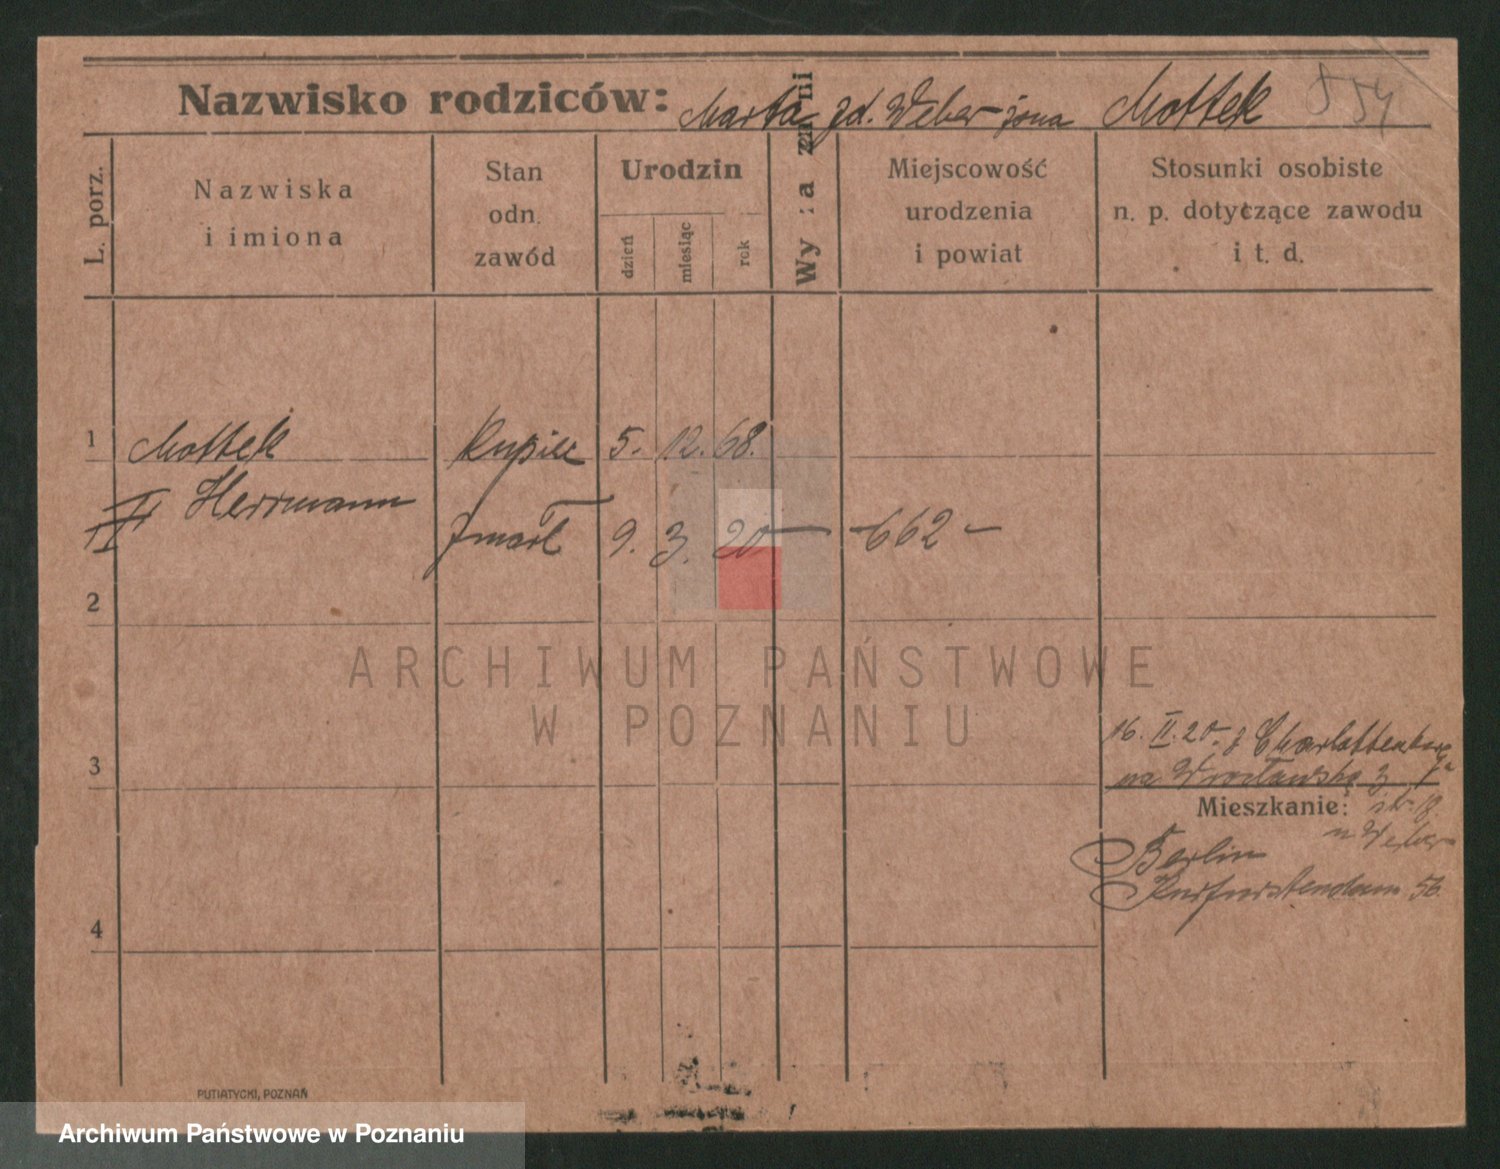 Nazwisko rodziców: Marta zd. Weber żona Mottek
L. porz.
Nazwiska
i imiona
Stan
odn.
zawód
Urodzin
dzień
miesiąc
rok
Wy :a zn ni
Miejscowość
urodzenia
i powiat
Stosunki osobiste
n. p. dotyczące zawodu
i t. d.
1 Mottek Kupiec 5. 12. 68.
Herrmann
zmarł 9. 3. 20 — 662 —
2
ARCHIWUM PAŃSTWOWE
W POZNANIU
16. II. 20. z Charlottenburga
3 na Wrocławską 3
Mieszkanie:
u Weber
Berlin
Kurfurstendam 56.
4
PUTIATYCKI, POZNAŃ
Archiwum Państwowe w Poznaniu